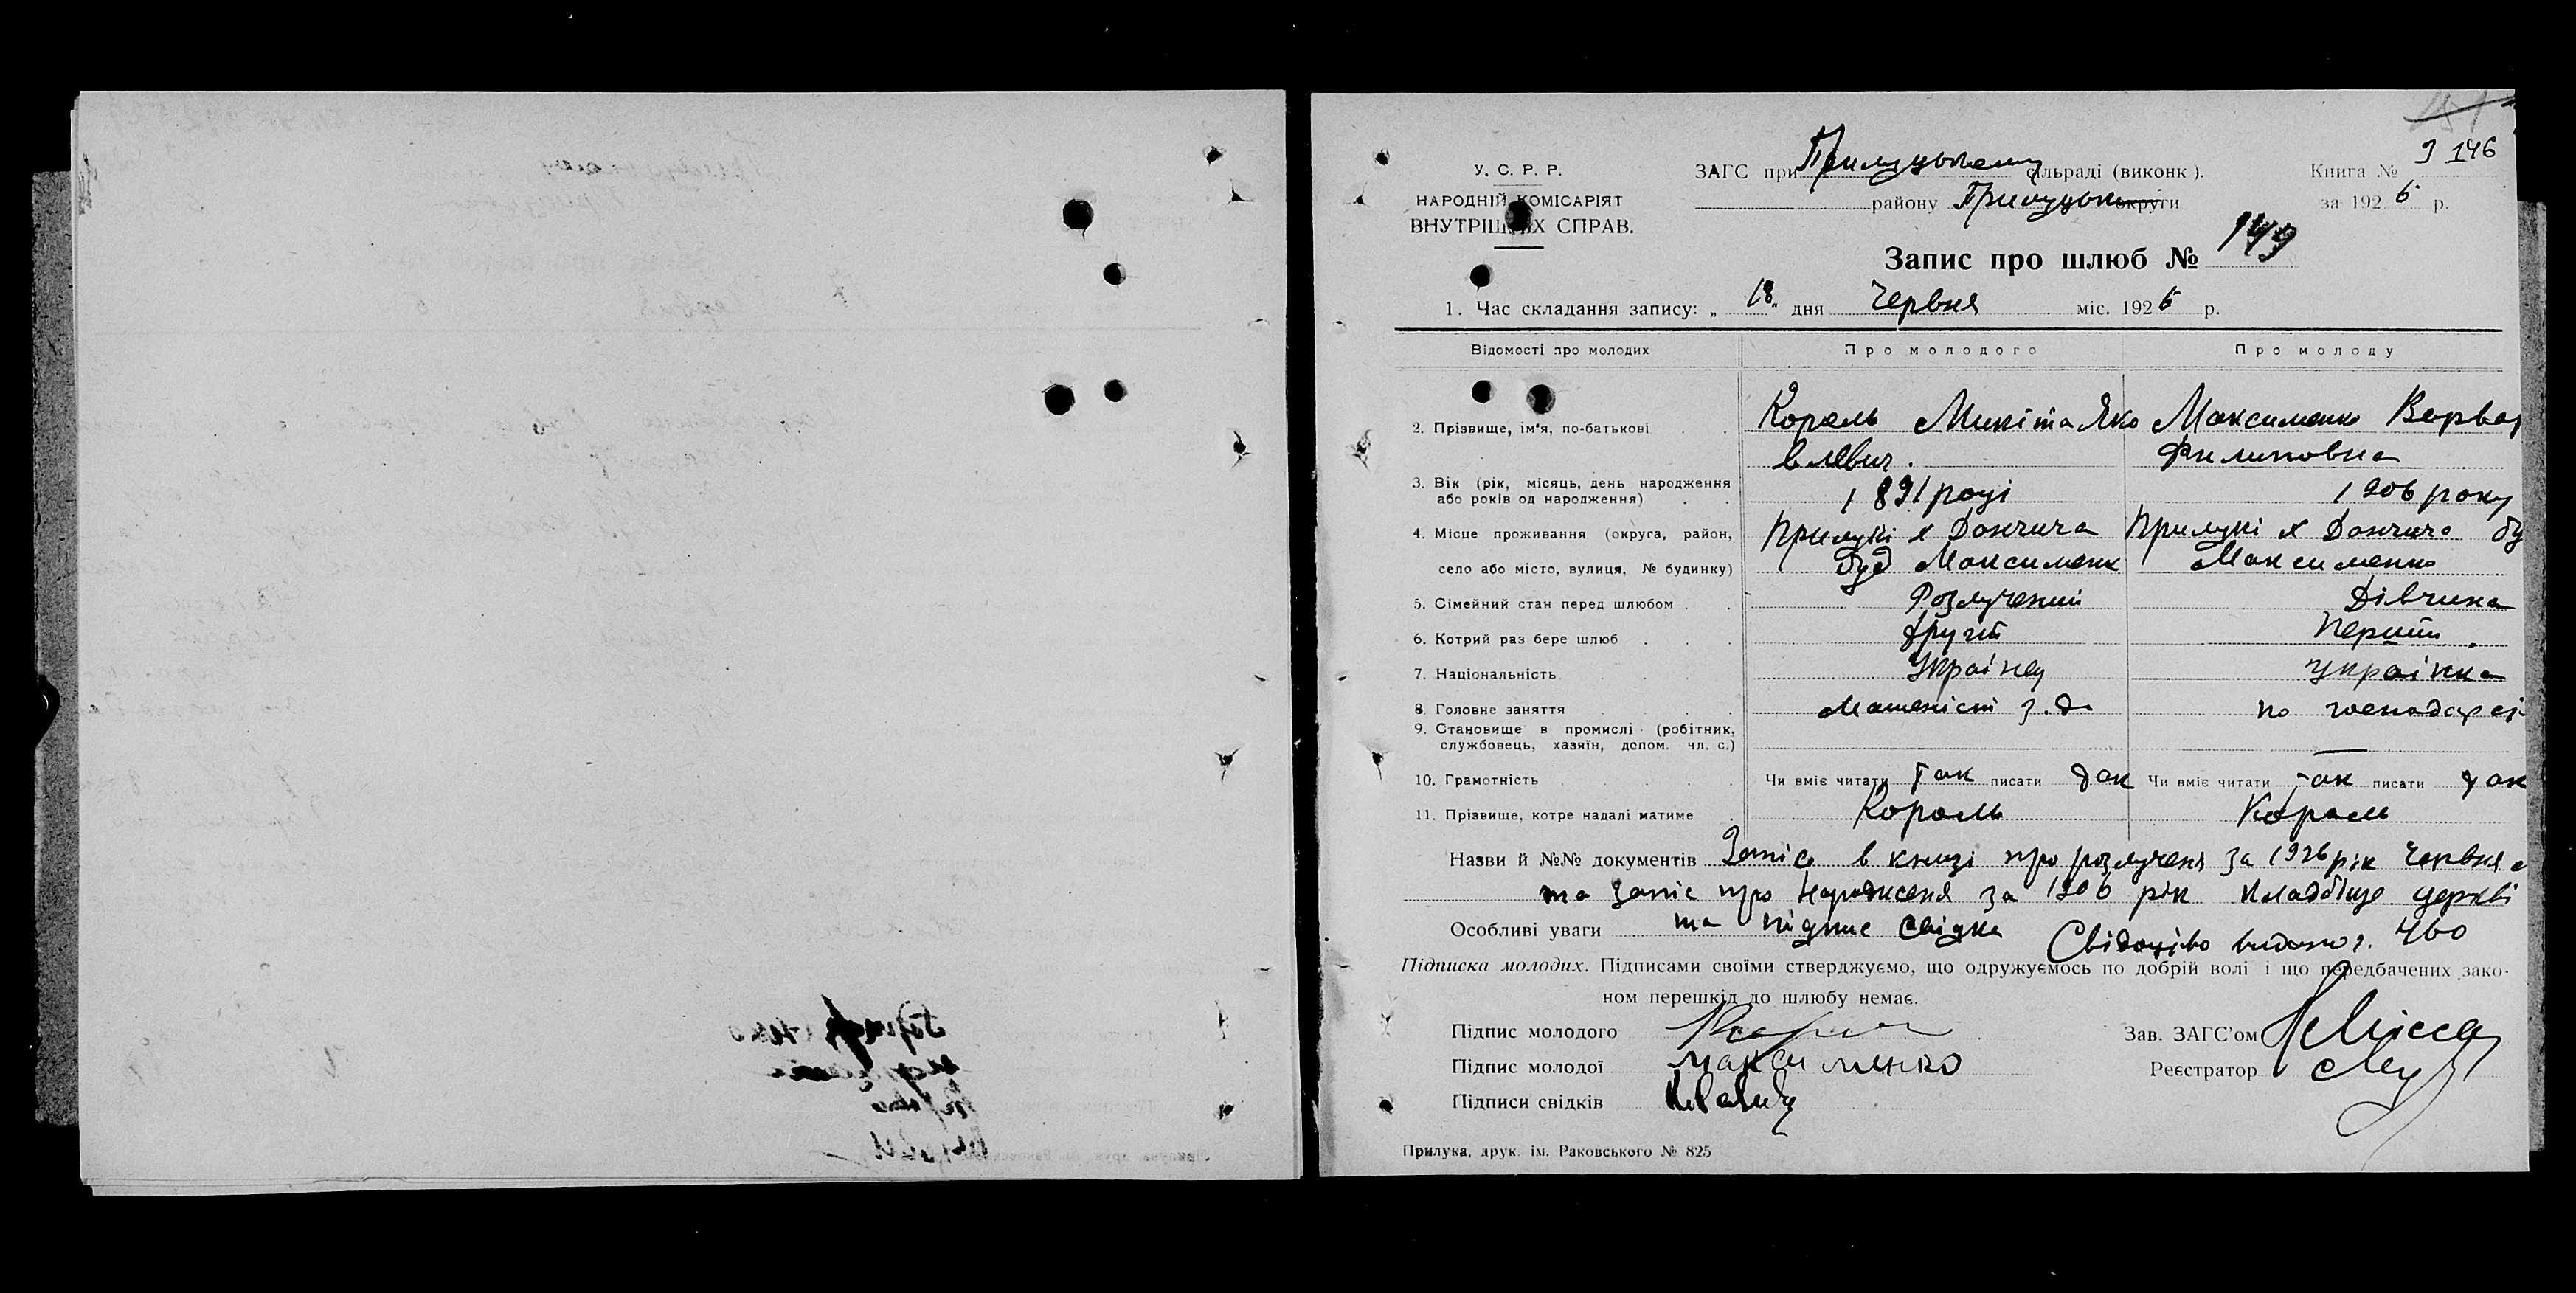 146
У. С. Р. Р.
НАРОДНІЙ КОМІСАРІЯТ
ВНУТРІШНІХ СПРАВ.
ЗАГС при Прилуцькому сільраді (виконк).
Книга №
району Прилуцьк округи
за 1926 р.
Запис про шлюб № 149
1. Час складання запису: „18" дня Червня міс. 1926 р.
Відомості про молодих Про молодого Про молоду
2. Прізвище, ім'я, по-батькові Король Микіта Яко Максименко Варвар
влевич. Филиповна
3. Вік (рік, місяць, день народження 1891 році 1906 року
або років од народження)
4. Місце проживання (округа, район, Прилукі х Дончича Прилукі х Дончича бу
село або місто, вулиця, № будинку) буд Максименк Максименко
5. Сімейний стан перед шлюбом Розлучений Дівчина
6. Котрий раз бере шлюб другій Перший
7. Національність Українец українка
8. Головне заняття Машеніст з.д. по господарсі
9. Становище в промислі (робітник,
службовець, хазяїн, допом. чл. с.) —
10. Грамотність Чи вміє читати Так писати так Чи вміє читати так писати так
11. Прізвище, котре надалі матиме Король Король
Назви й №№ документів Запіс в книзі про розлученя за 1926 рік Червня
та запіс про народженя за 1906 рік кладбіще церкві
Особливі уваги та підпис свідка Свідоцтво видано г. 460
Підписка молодих. Підписами своїми стверджуємо, що одружуємось по добрій волі і що передбачених зако-
ном перешкід до шлюбу немає.
Підпис молодого
Зав. ЗАГС'ом
Підпис молодої Максименко
Реєстратор
Підписи свідків
Прилука, друк. ім. Раковського № 825